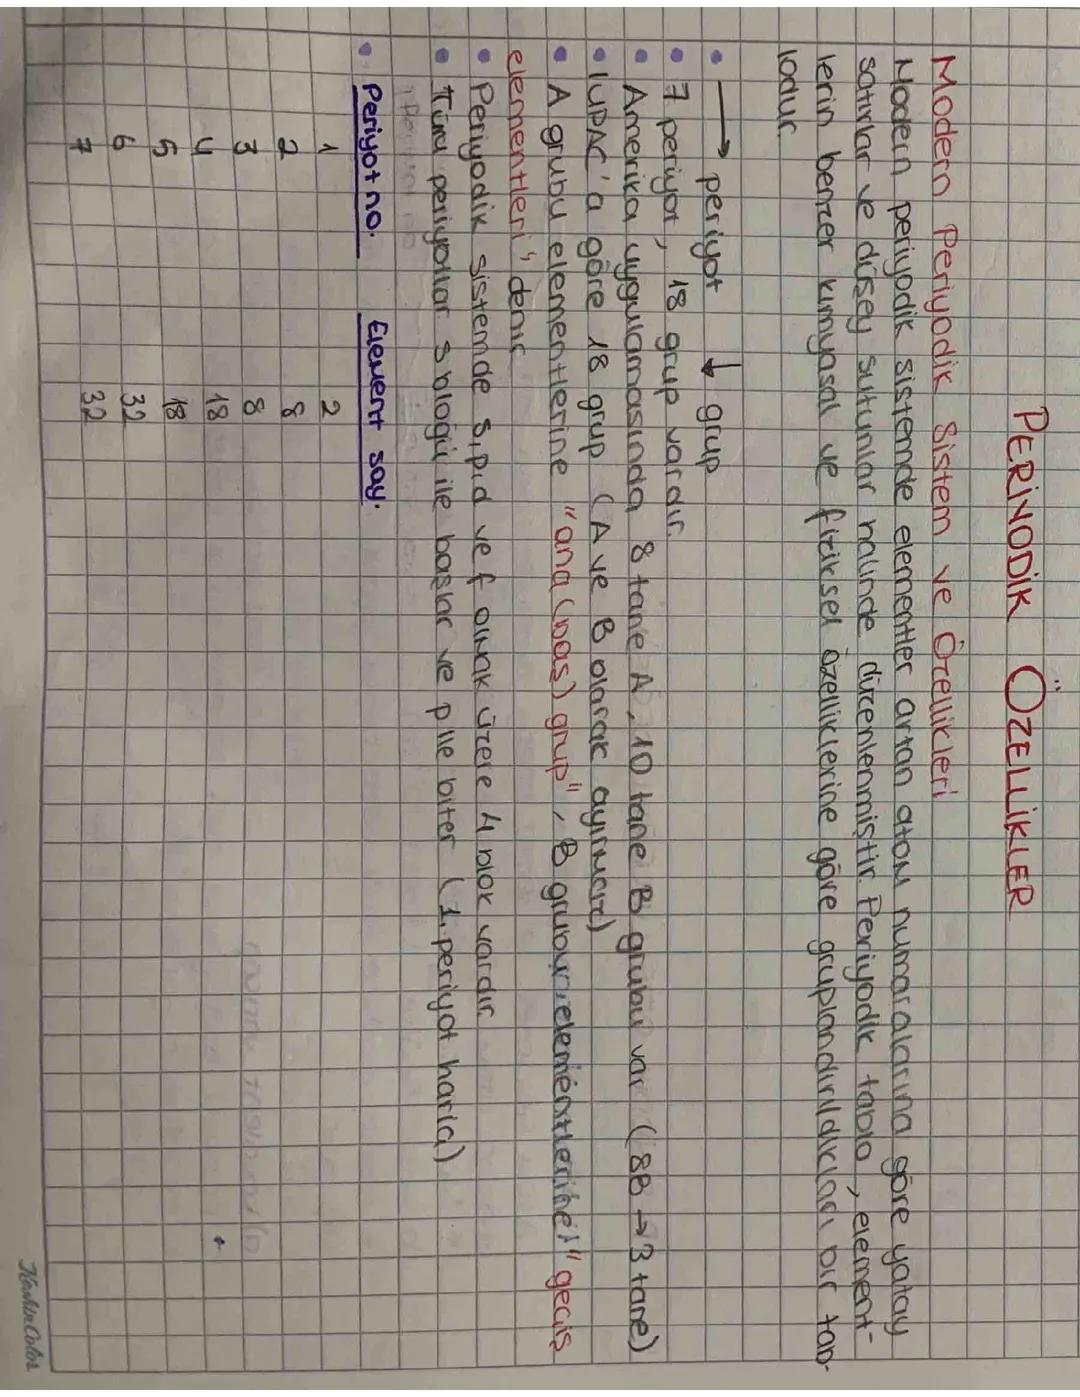 PERİYODİK ÖZELLİKLER
Modern Periyodik Sistem ve Özellikleri
Modern periyodik sistemde elementler artan atom numaralarına göre yatay
satırlar ve düşey sütunlar halinde düzenlenmiştir. Periyodik tablo, element-
lerin benzer kimyasal ve fiziksel özelliklerine göre gruplandırıldıkları bir tab-
lodur.
• → periyot ↓ grup
• 7 periyot, 18 grup vardır.
• Amerika uygulamasında 8 tane A, 10 tane B grubu var (8B → 3 tane)
• IUPAC'a göre 18 grup (A ve B olarak ayırmaz)
• A grubu elementlerine "ana (baş) grup", B grubu elementlerine "geçiş
elementleri" denir
• Periyodik sistemde s,p,d ve f olmak üzere 4 blok vardır.
• Tüm periyotlar s bloğu ile başlar ve p ile biter (1. periyot hariç)
• Periyot no. Element say.
1 2
2 8
3 8
4 18
5 18
6 32
7 32